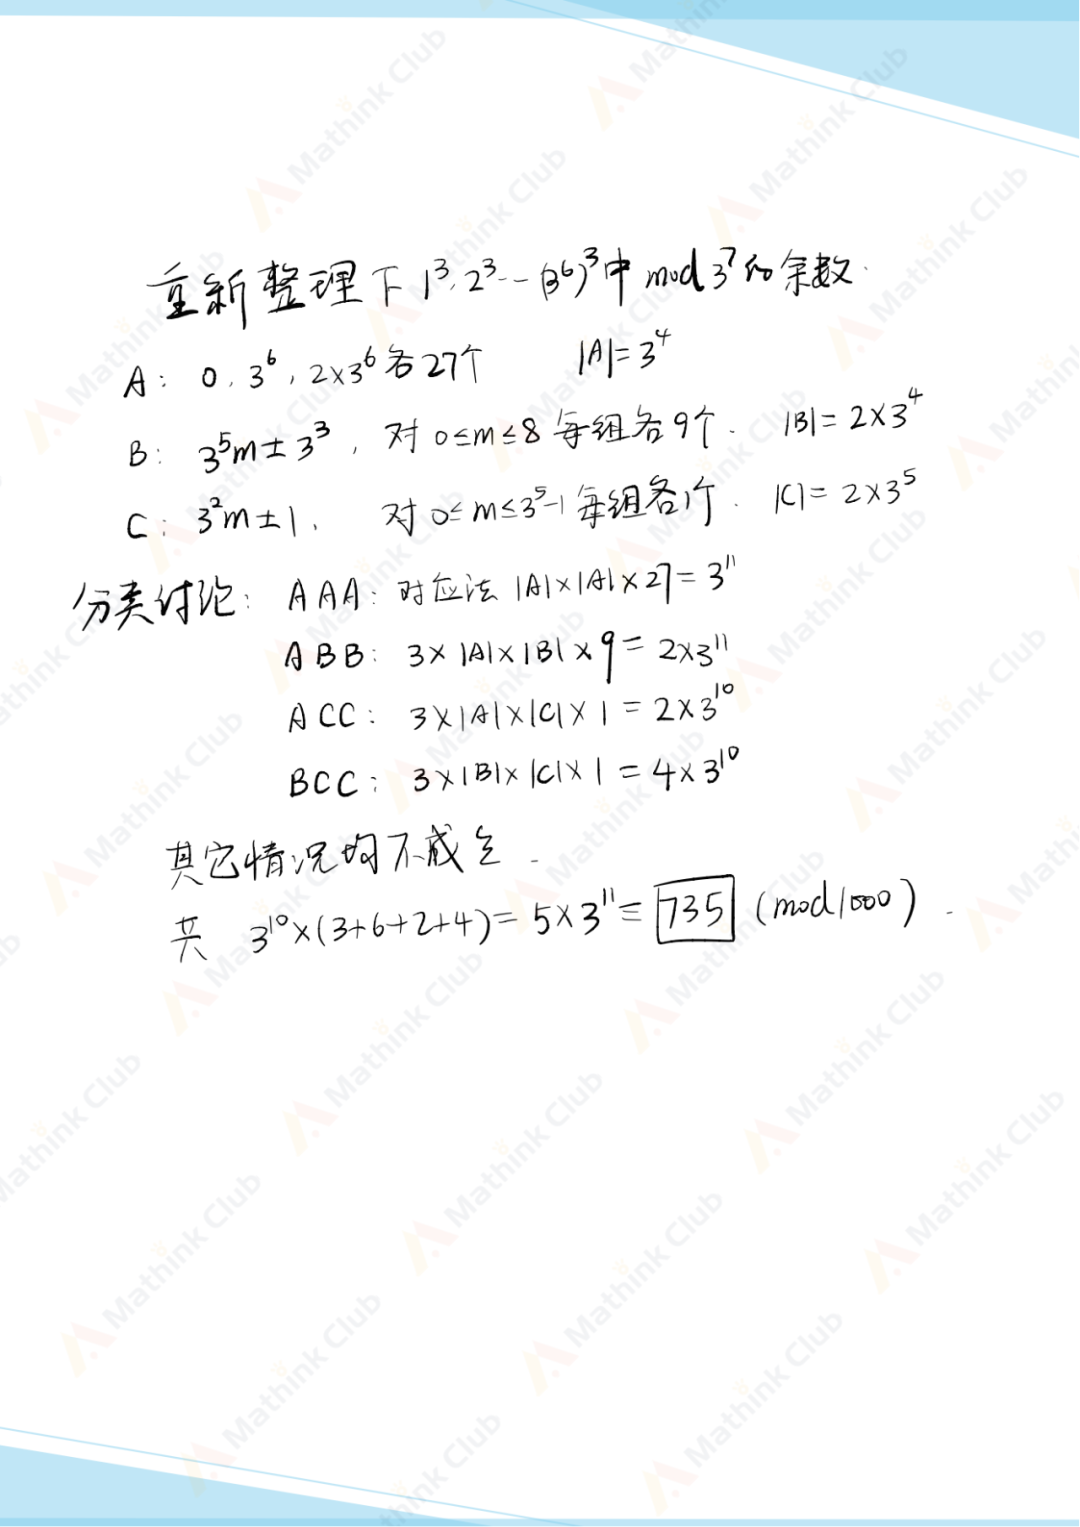 重新整理下 1³, 2³ -- (3⁶)³ 中 mod 3⁷ 的余数.
A: 0, 3⁶, 2×3⁶ 各27个 |A|= 3⁴
B: 3⁵m ± 3³, 对 0≤m≤8 每组各9个. |B|= 2×3⁴
C: 3²m ± 1, 对 0≤m≤3⁵-1 每组各1个. |C|= 2×3⁵
分类讨论: AAA: 对应法 |A|×|A|×27= 3¹¹
ABB: 3×|A|×|B|×9= 2×3¹¹
ACC: 3×|A|×|C|×1= 2×3¹⁰
BCC: 3×|B|×|C|×1= 4×3¹⁰
其它情况均不成立.
共 3¹⁰×(3+6+2+4)= 5×3¹¹≡ 735 (mod 1000).
Mathink Club